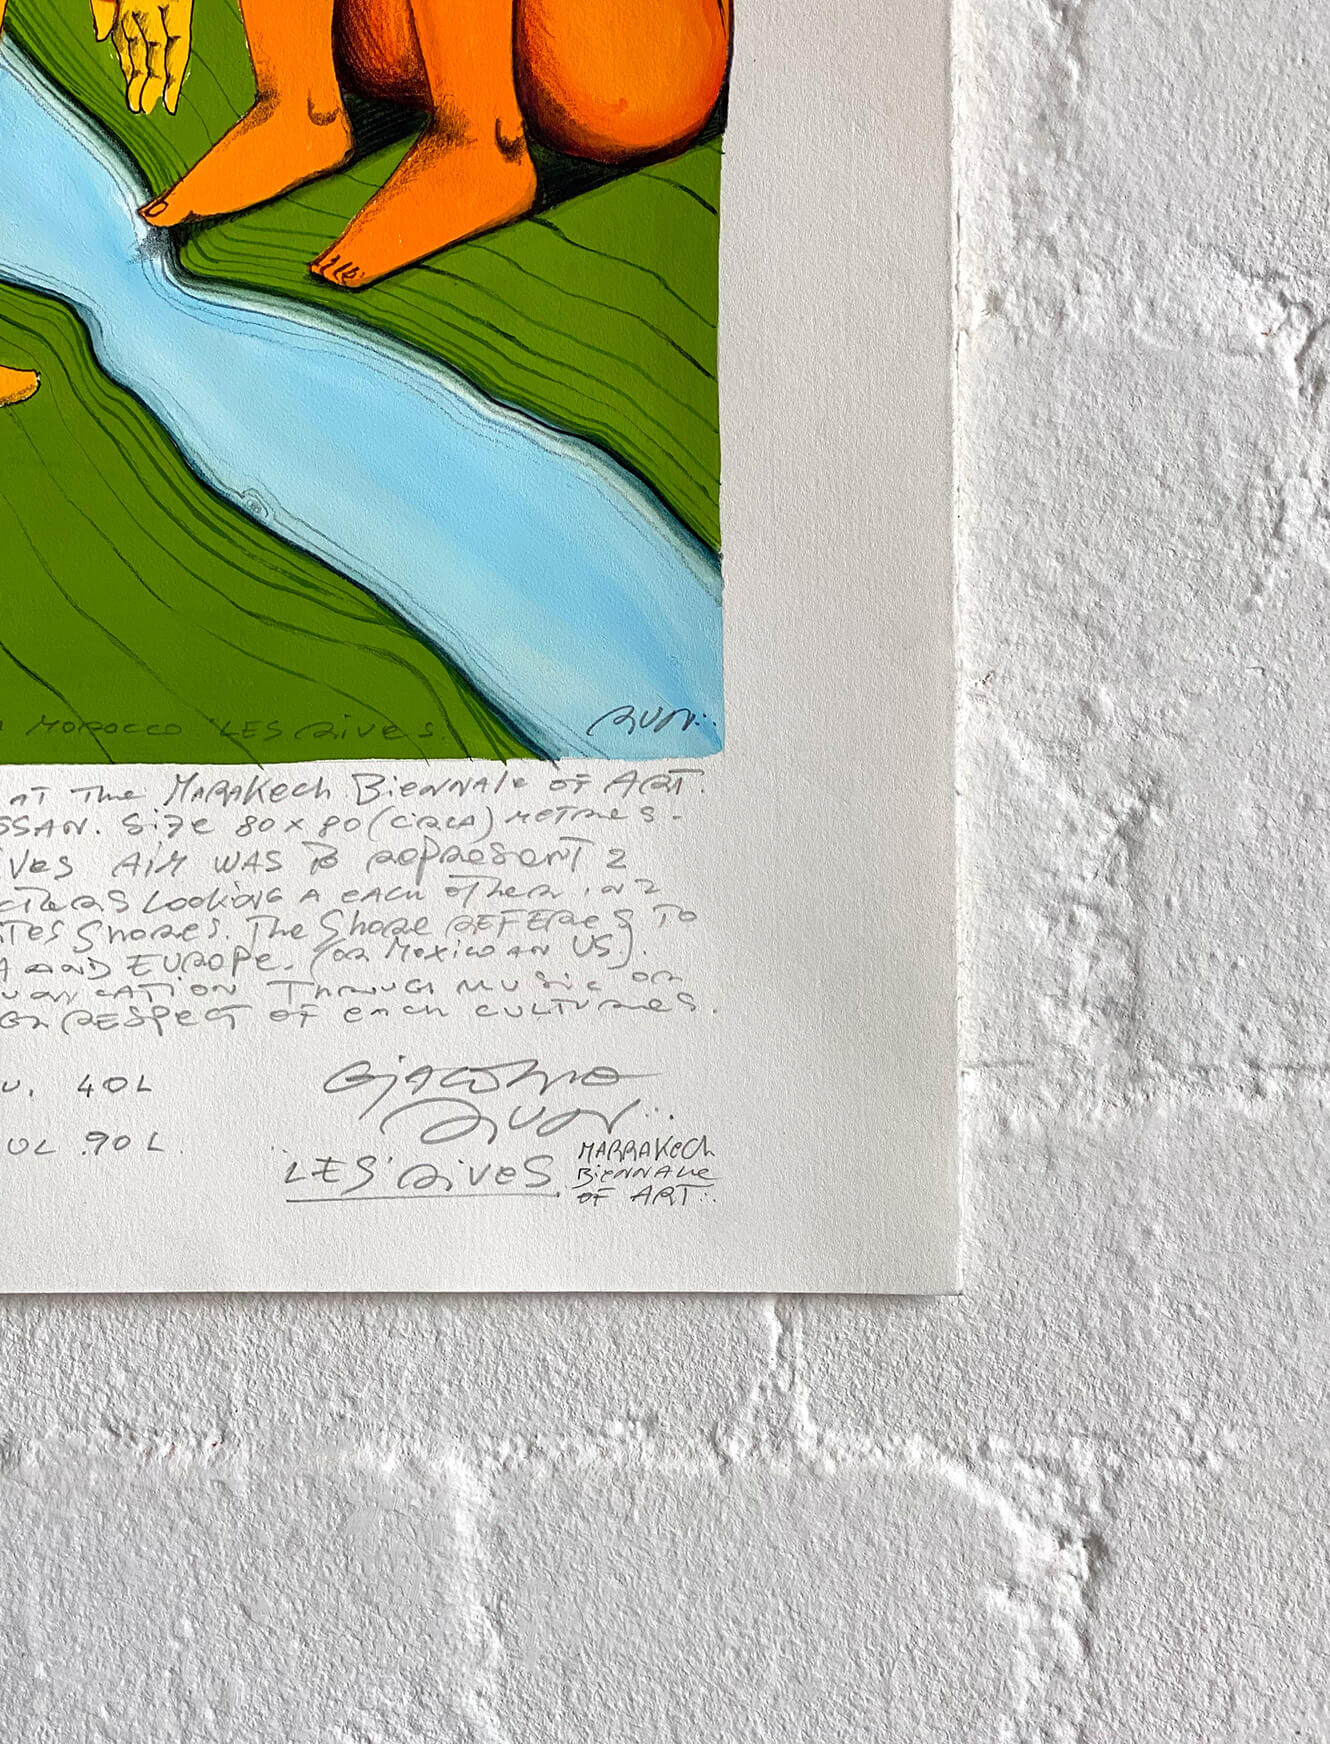 MOROCCO 'LES RIVES.
RUN...
AT THE MARAKECH BIENNALE OF ART.
SSAN. SIZE 80 X 80 (CIRCA) METRES -
VES AIM WAS TO REPRESENT 2
CTERS LOOKING A EACH OTHER IN 2
ITES SHORES. THE SHORE REFERES TO
A AND EUROPE. (OR MEXICO AN US).
CATION THROUGH MUSIC OR
RESPECT OF EACH CULTURES.
U. 40L
GIACOMO
RUN...
UL .90L.
'LES' RIVES.
MARRAKECH
BIENNALE
OF ART...